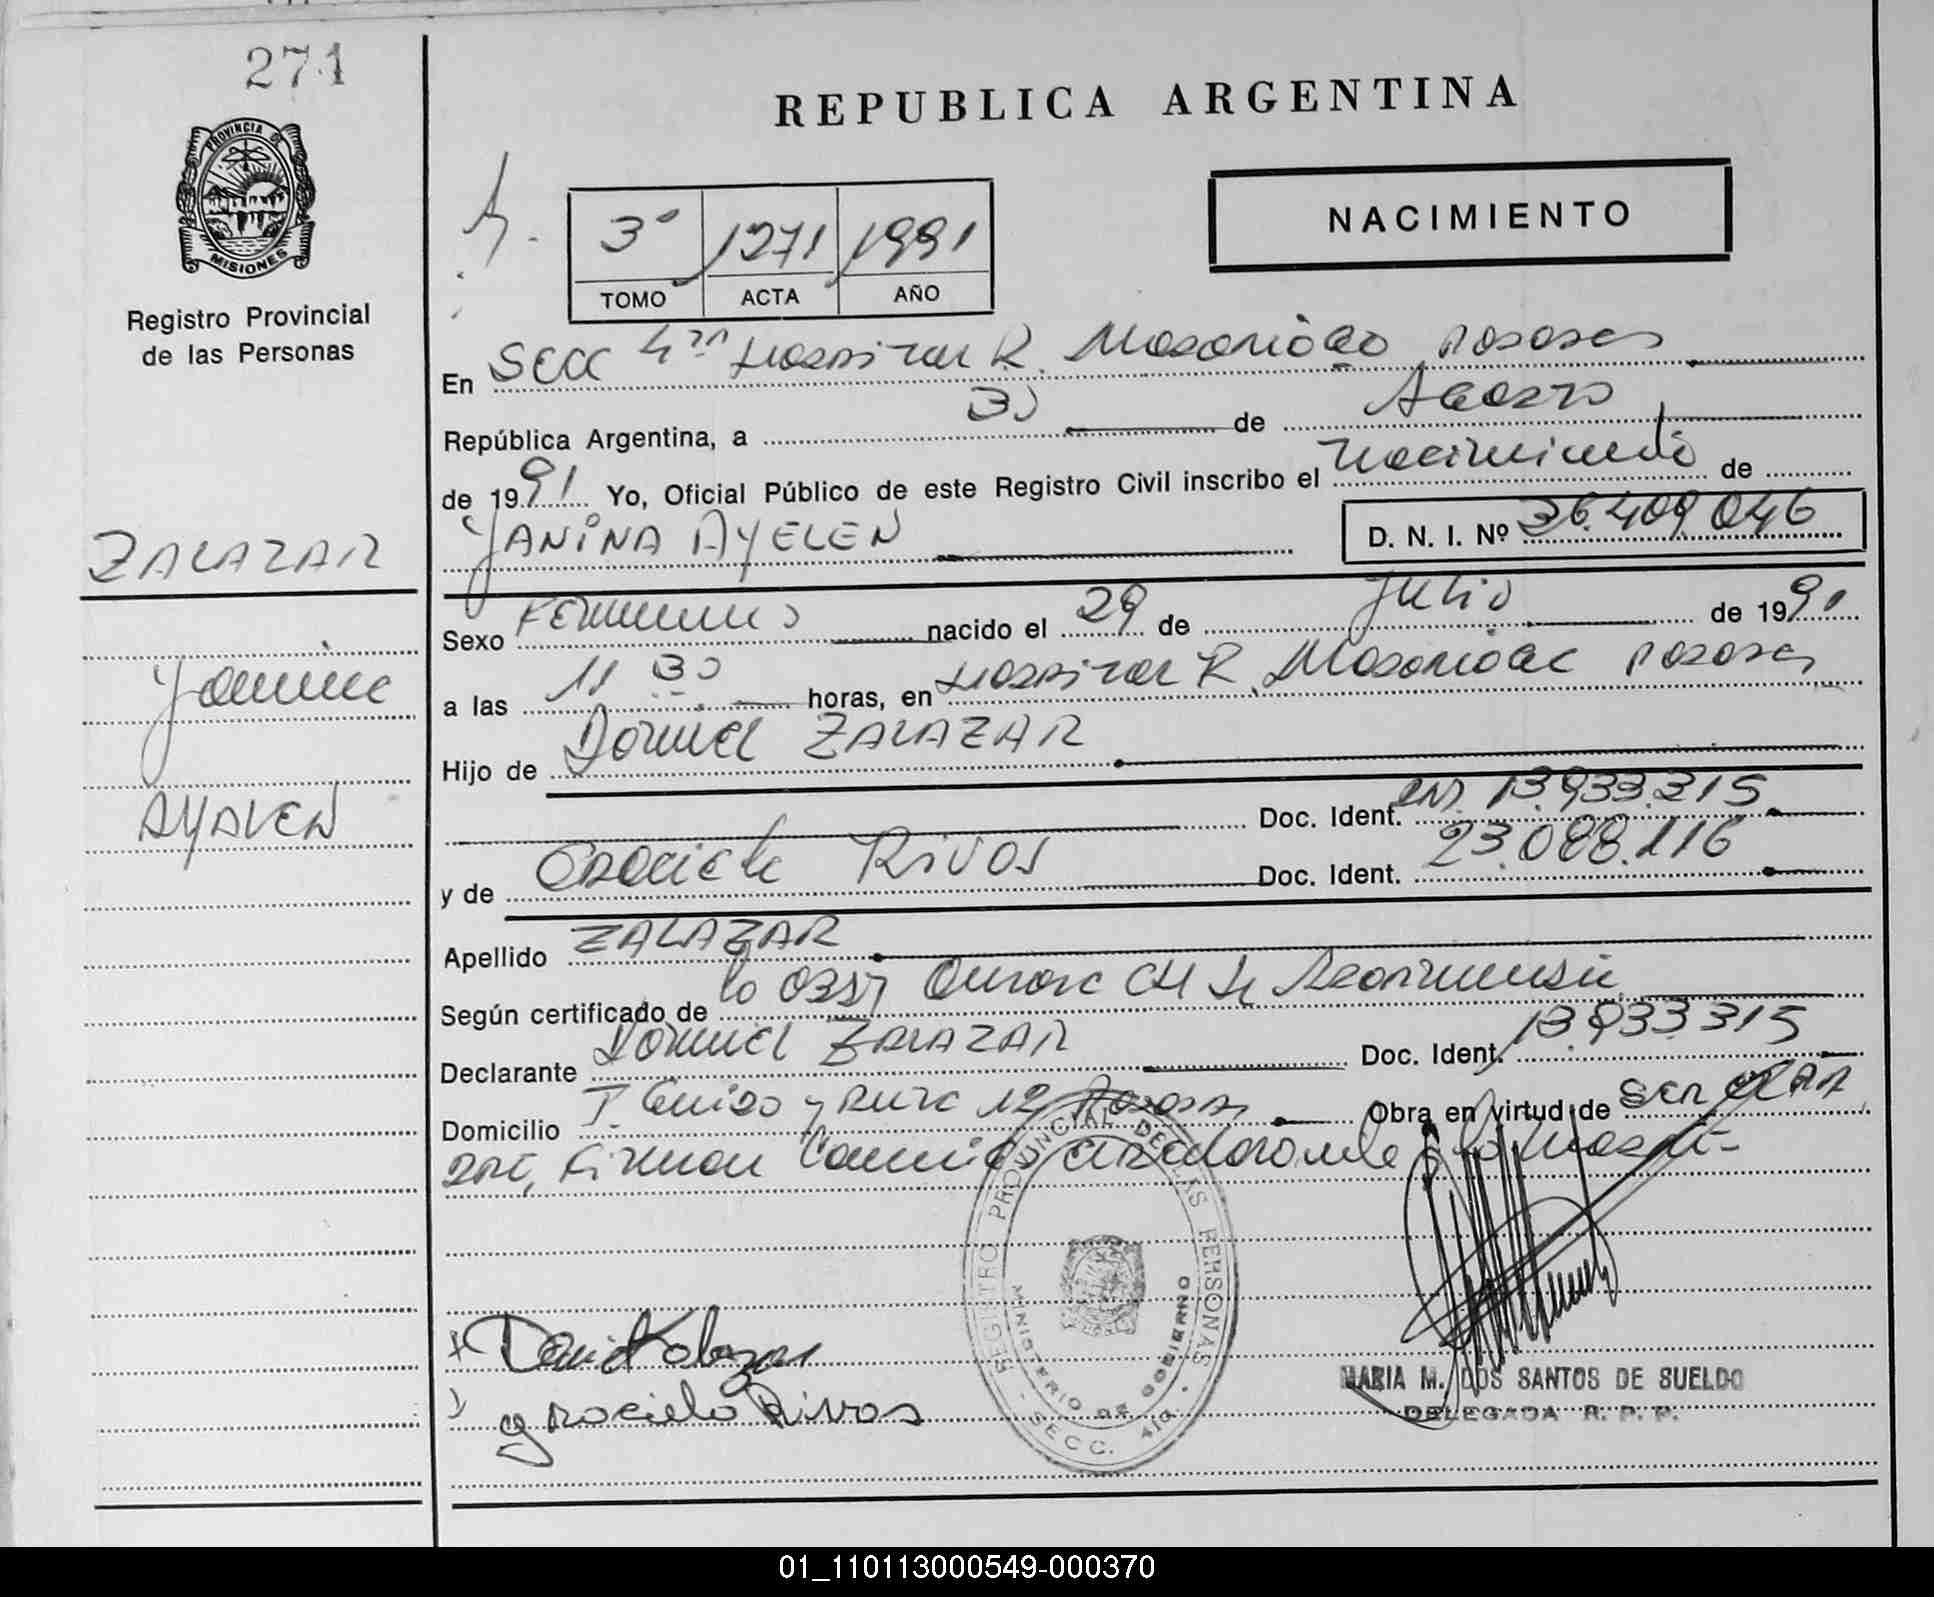 271
REPUBLICA ARGENTINA
PROVINCIA DE
MISIONES
Registro Provincial
de las Personas
NACIMIENTO
3º 1271 1991
TOMO ACTA AÑO
En SECC 4ta Hospital R. Posadas
República Argentina, a 30 de Agosto
de 1991 Yo, Oficial Público de este Registro Civil inscribo el nacimiento de
YANINA AYELEN
D. N. I. Nº 36.409.046
ZALAZAR
Yanina
AYELEN
Sexo Femenino nacido el 29 de Julio de 1991
a las 11 30 horas, en Hospital R. Posadas
Hijo de Daniel ZALAZAR
Doc. Ident. DNI. 13.933.315
y de Graciela Rivas Doc. Ident. 23.088.116
Apellido ZALAZAR
Según certificado de la Obst
Declarante Daniel ZALAZAR Doc. Ident. 13.933.315
Domicilio Posadas Obra en virtud de ser el PA
DRE, Firman
Daniel Zalazar
graciela Rivas
REGISTRO PROVINCIAL DE LAS PERSONAS
MINISTERIO DE GOBIERNO
SECC. 4ta.
MARIA M. DOS SANTOS DE SUELDO
DELEGADA R. P. P.
01_110113000549-000370